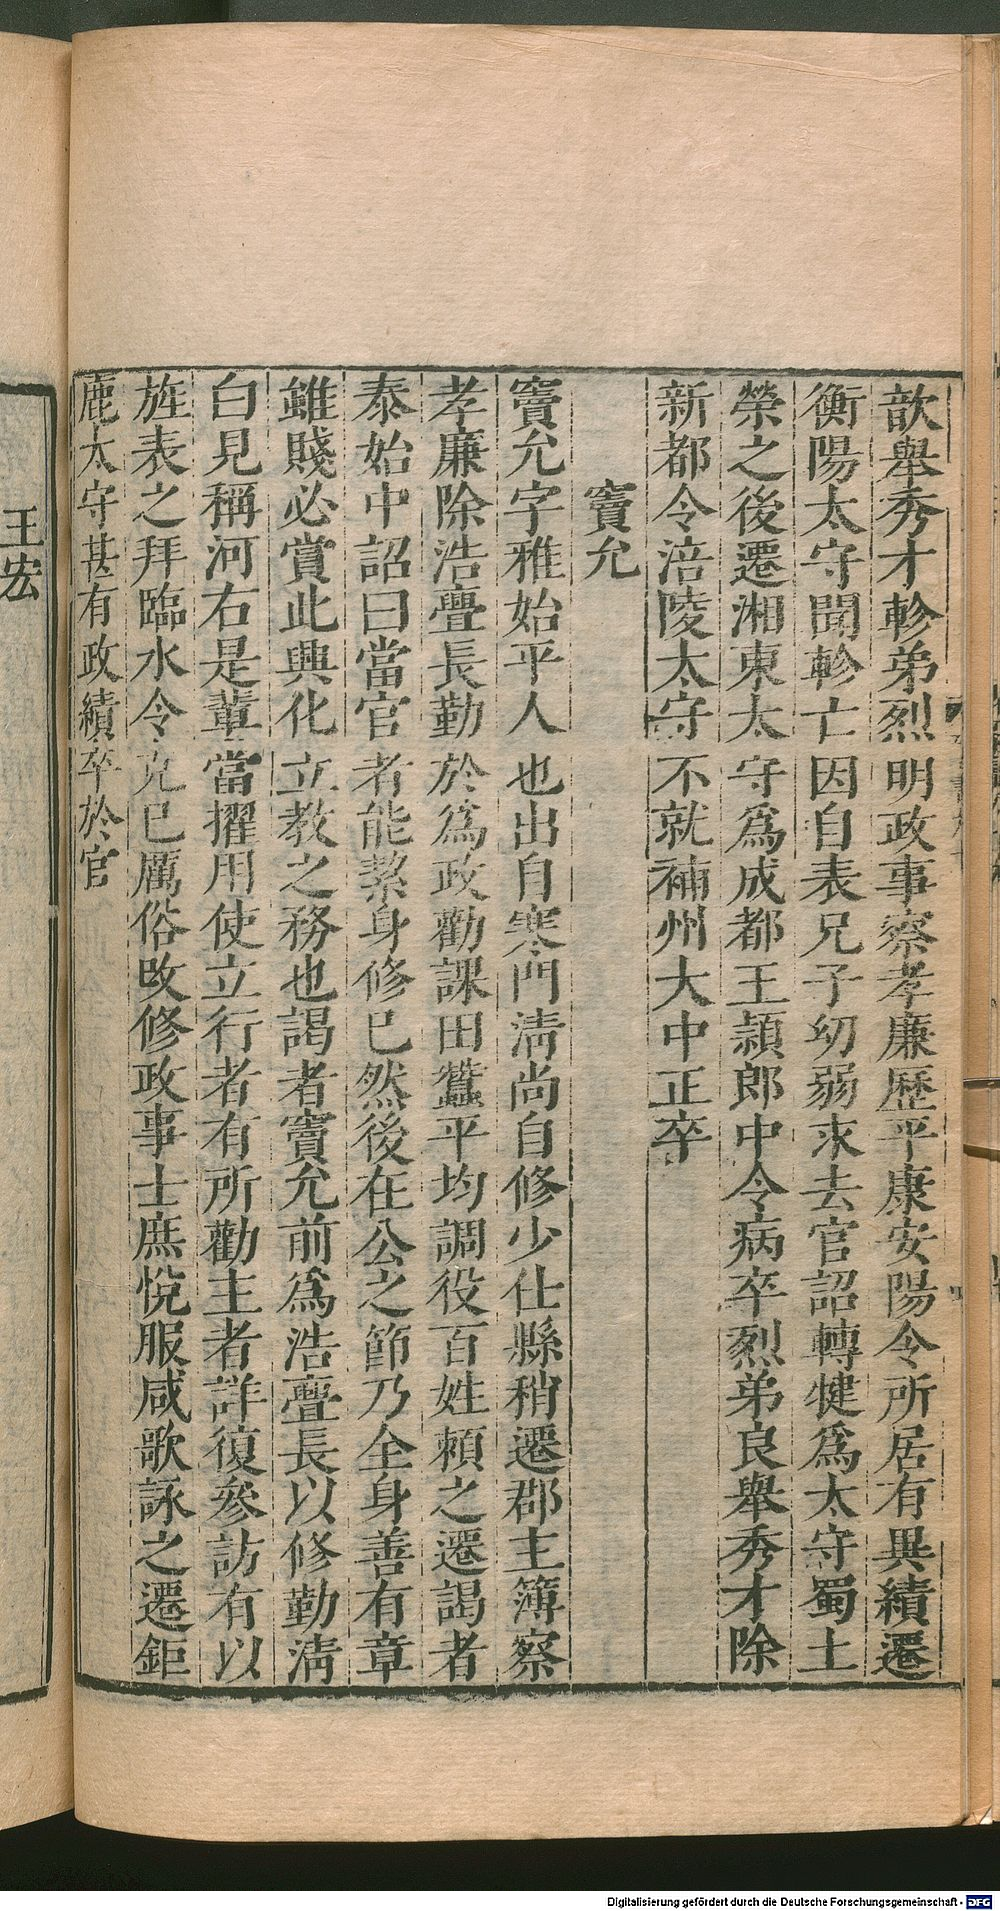 歆舉秀才軫弟烈明政事察孝廉歷平康安陽令所居有異績遷
衡陽太守聞軫亡因自表兄子幼弱求去官詔轉犍爲太守蜀土
榮之後遷湘東太守爲成都王潁郎中令病卒烈弟良舉秀才除
新都令涪陵太守不就補州大中正卒
竇允
竇允字雅始平人也出自寒門清尚自修少仕縣稍遷郡主簿察
孝廉除浩亹長勤於爲政勸課田蠶平均調役百姓賴之遷謁者
泰始中詔曰當官者能絜身修己然後在公之節乃全身善有章
雖賤必賞此興化立教之務也謁者竇允前爲浩亹長以修勤清
白見稱河右是輩當擢用使立行者有所勸主者詳復參訪有以
旌表之拜臨水令克己厲俗改修政事士庶悅服咸歌詠之遷鉅
鹿太守甚有政績卒於官
王宏
Digitalisierung gefördert durch die Deutsche Forschungsgemeinschaft - DFG